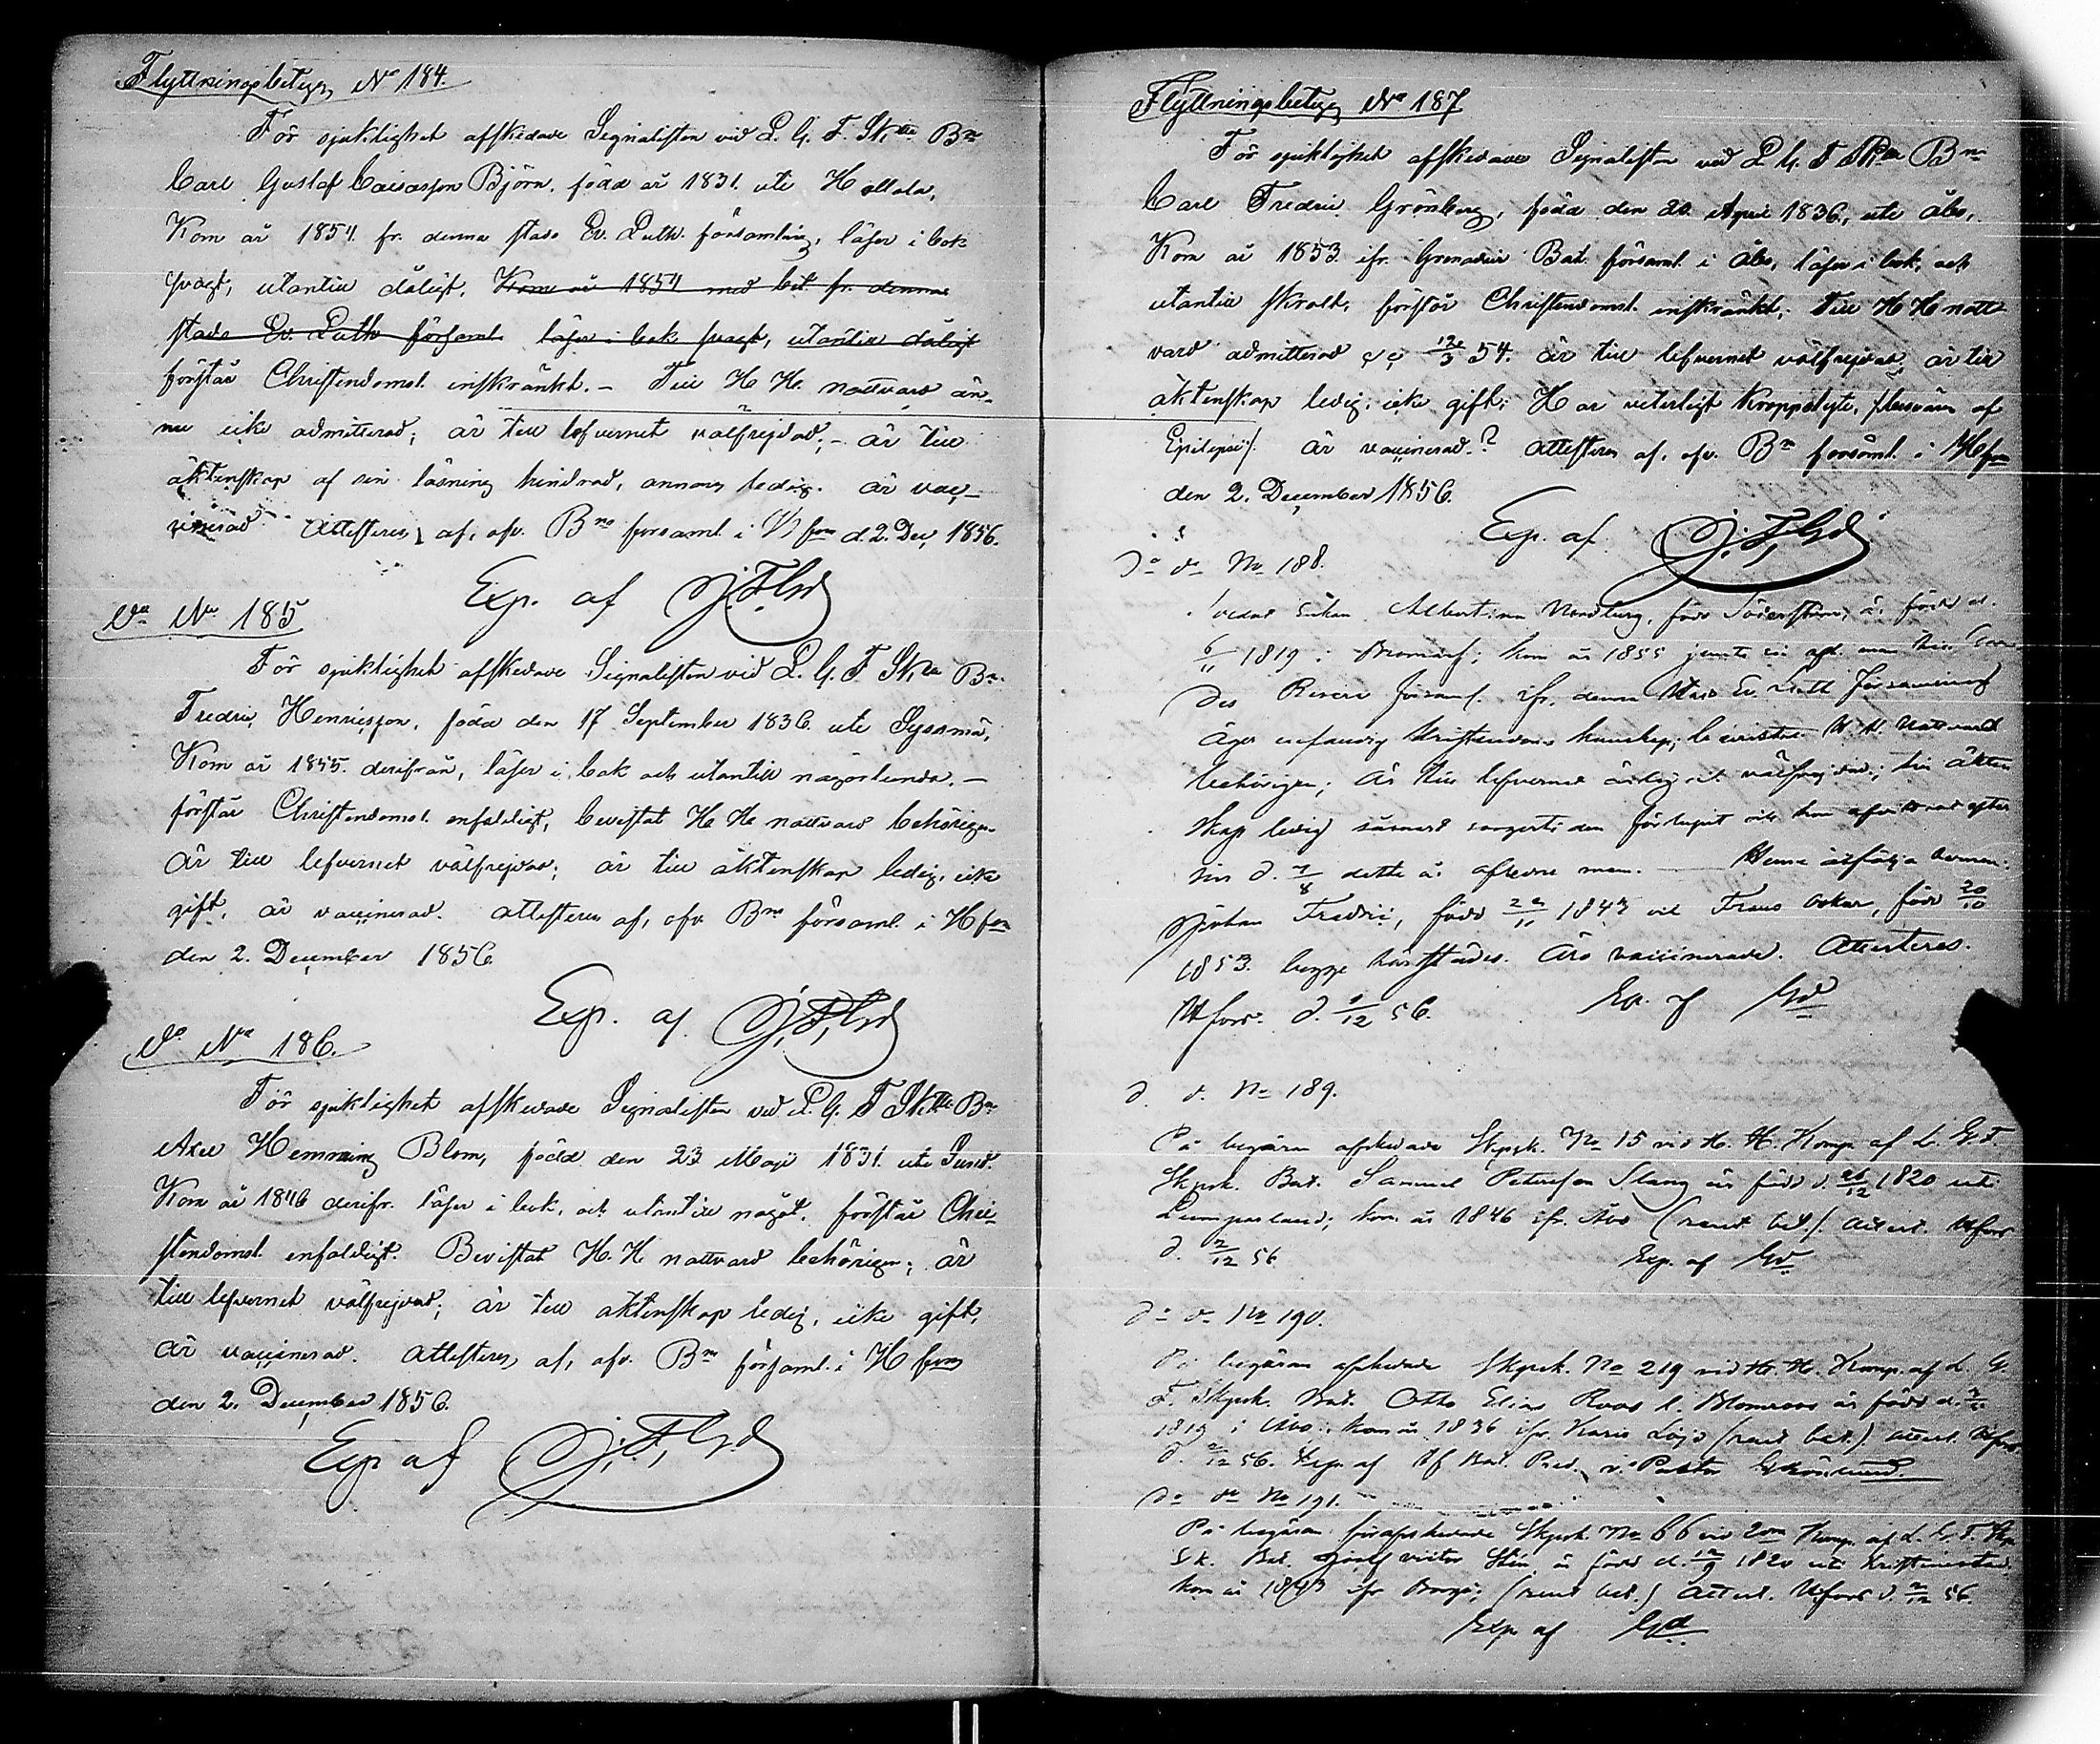 Flyttningsbetyg No 184.
För sjuklighet afskedade Signalisten vid L. G. F. Sk:tte Bn
Carl Gustaf Caisasson Björn, född år 1831. uti Hollola,
Kom år 1854 fr. denna stads Ev. Luth. församling, läser i bok
svagt, utantill dåligt. Kom år 1854 med bet. fr. denna
stads Ev. Luth församl. läser i bok svagt, utantill dåligt
förstår Christendomst. inskränkt. – Till H. H. nattvard än-
nu icke admitterad; är till lefvernet välfrejdad; – är till
äktenskap af sin läsning hindrad, annars ledig. är vac-
cinerad Attesteras af, ofv. Bns församl. i Hfors d. 2. Dec, 1856.
Exp. af J. F. Gd
Do No 185
För sjuklighet afskedade Signalisten vid L. G. F. Sk:tte Bn.
Fredric Henricsson, född den 17 September 1836. uti Sysmä,
Kom år 1845. derifrån, läser i bok och utantill någorlunda. –
förstår Christendomst. enfaldigt, bevistat H. H. nattvard behörigen
är till lefvernet välfrejdad; är till äktenskap ledig, icke
gift, är vaccinerad. attesteras af, ofv. Bns församl. i Hfors
den 2. December 1856.
Exp. af J. F. Gd
Do No 186.
För sjuklighet afskedade Signalisten vid L. G. F Sk:tte Bn
Axel Hemming Blom, född den 23 Maji 1831. uti Sund.
Kom år 1846 derifr. läser i bok, och utantill något. förstår Chri-
stendomst. enfaldigt. Bevistat H. H nattvard behörigen; är
till lefvernet välfrejdad; är till äktenskap ledig, icke gift,
är vaccinerad. attesteras af, ofv. Bns församl. i Hfors
den 2. December 1856.
Exp af J. F. Gd
Flyttningsbetyg No 187
För sjuklighet afskedade Signalisten vid L G. F Sk:tte Bn
Carl Fredric Grönberg, född den 20. April 1836, uti Åbo,
Kom år 1853 ifr. Grenadier Bat. församl. i Åbo, läser i bok, och
utantill skralt, förstår Christendomst. inskränkt, Till H H natt
vard admitterad 54. är till lefvernet välfrejdad, är till
äktenskap ledig, icke gift; Har veterligt kroppslyte, af
Epilepsi). är vaccinerad? attesteras af, ofv. Bns församl. i Hfors
den 2. December 1856.
Exp. af J. F. Gd
Do do No 188.
Enkan Albertina Nordberg, född Söderström, är född d.
6/11 1819 i Bromarf; kom år 1855 jemte man till
des församl. ifr. denna Stads Ev. Luth församling
Äger enfaldig kristendoms kunskap; bevistat H. H. Nattvard
behörigen; Är till lefvernet ärlig och välfrejdad; till äkten
skap ledig såsnart sorgetiden förlupit efter
sin d. 7/8 detta år aflidne man. – Henne åtfölja
Johan Fredric, född 1843 och Frans Oskar, född 20/10
1853. begge härstädes. Äro vaccinerade. Attesteras.
Hfors. d. 56. Ex. af Gd
d. d. No 189.
På begäran afskedade Skpsk. No 15 vid H. H. Komp. af L. G. F.
Skpsk. Bat. Samuel Petersson Slang är född d. 26/12 1820 uti
Lumparland; kom år 1846 ifr. Åbo (rent bet). Attest. Hfors
d. 2/12 56
Exp. af Gd
Do do No 190.
På begäran afskedade Skpsk. No 219 vid H. H. Komp. af L. G.
F. Skpsk. Bat. Otto Elias Roos l. Blomroos är född d.
1819 i Åbo: kom år 1836 ifr. Karis Lojo (rent bet.). Attest. Hfors
d. 2/12 56. Exp. af Bat. Pred. v. Pastor Grönlund.
Do do No 191.
På begäran afskedade Skpsk. No 66 vid 2dra Komp. af L. G. F. Skp
Sk. Bat. Victor Stén är född d. 1820 uti Kristinestad
kom år 1843 ifr Borgå; (rent bet.) Attest. Hfors d. 2/12 56.
Exp af Gd